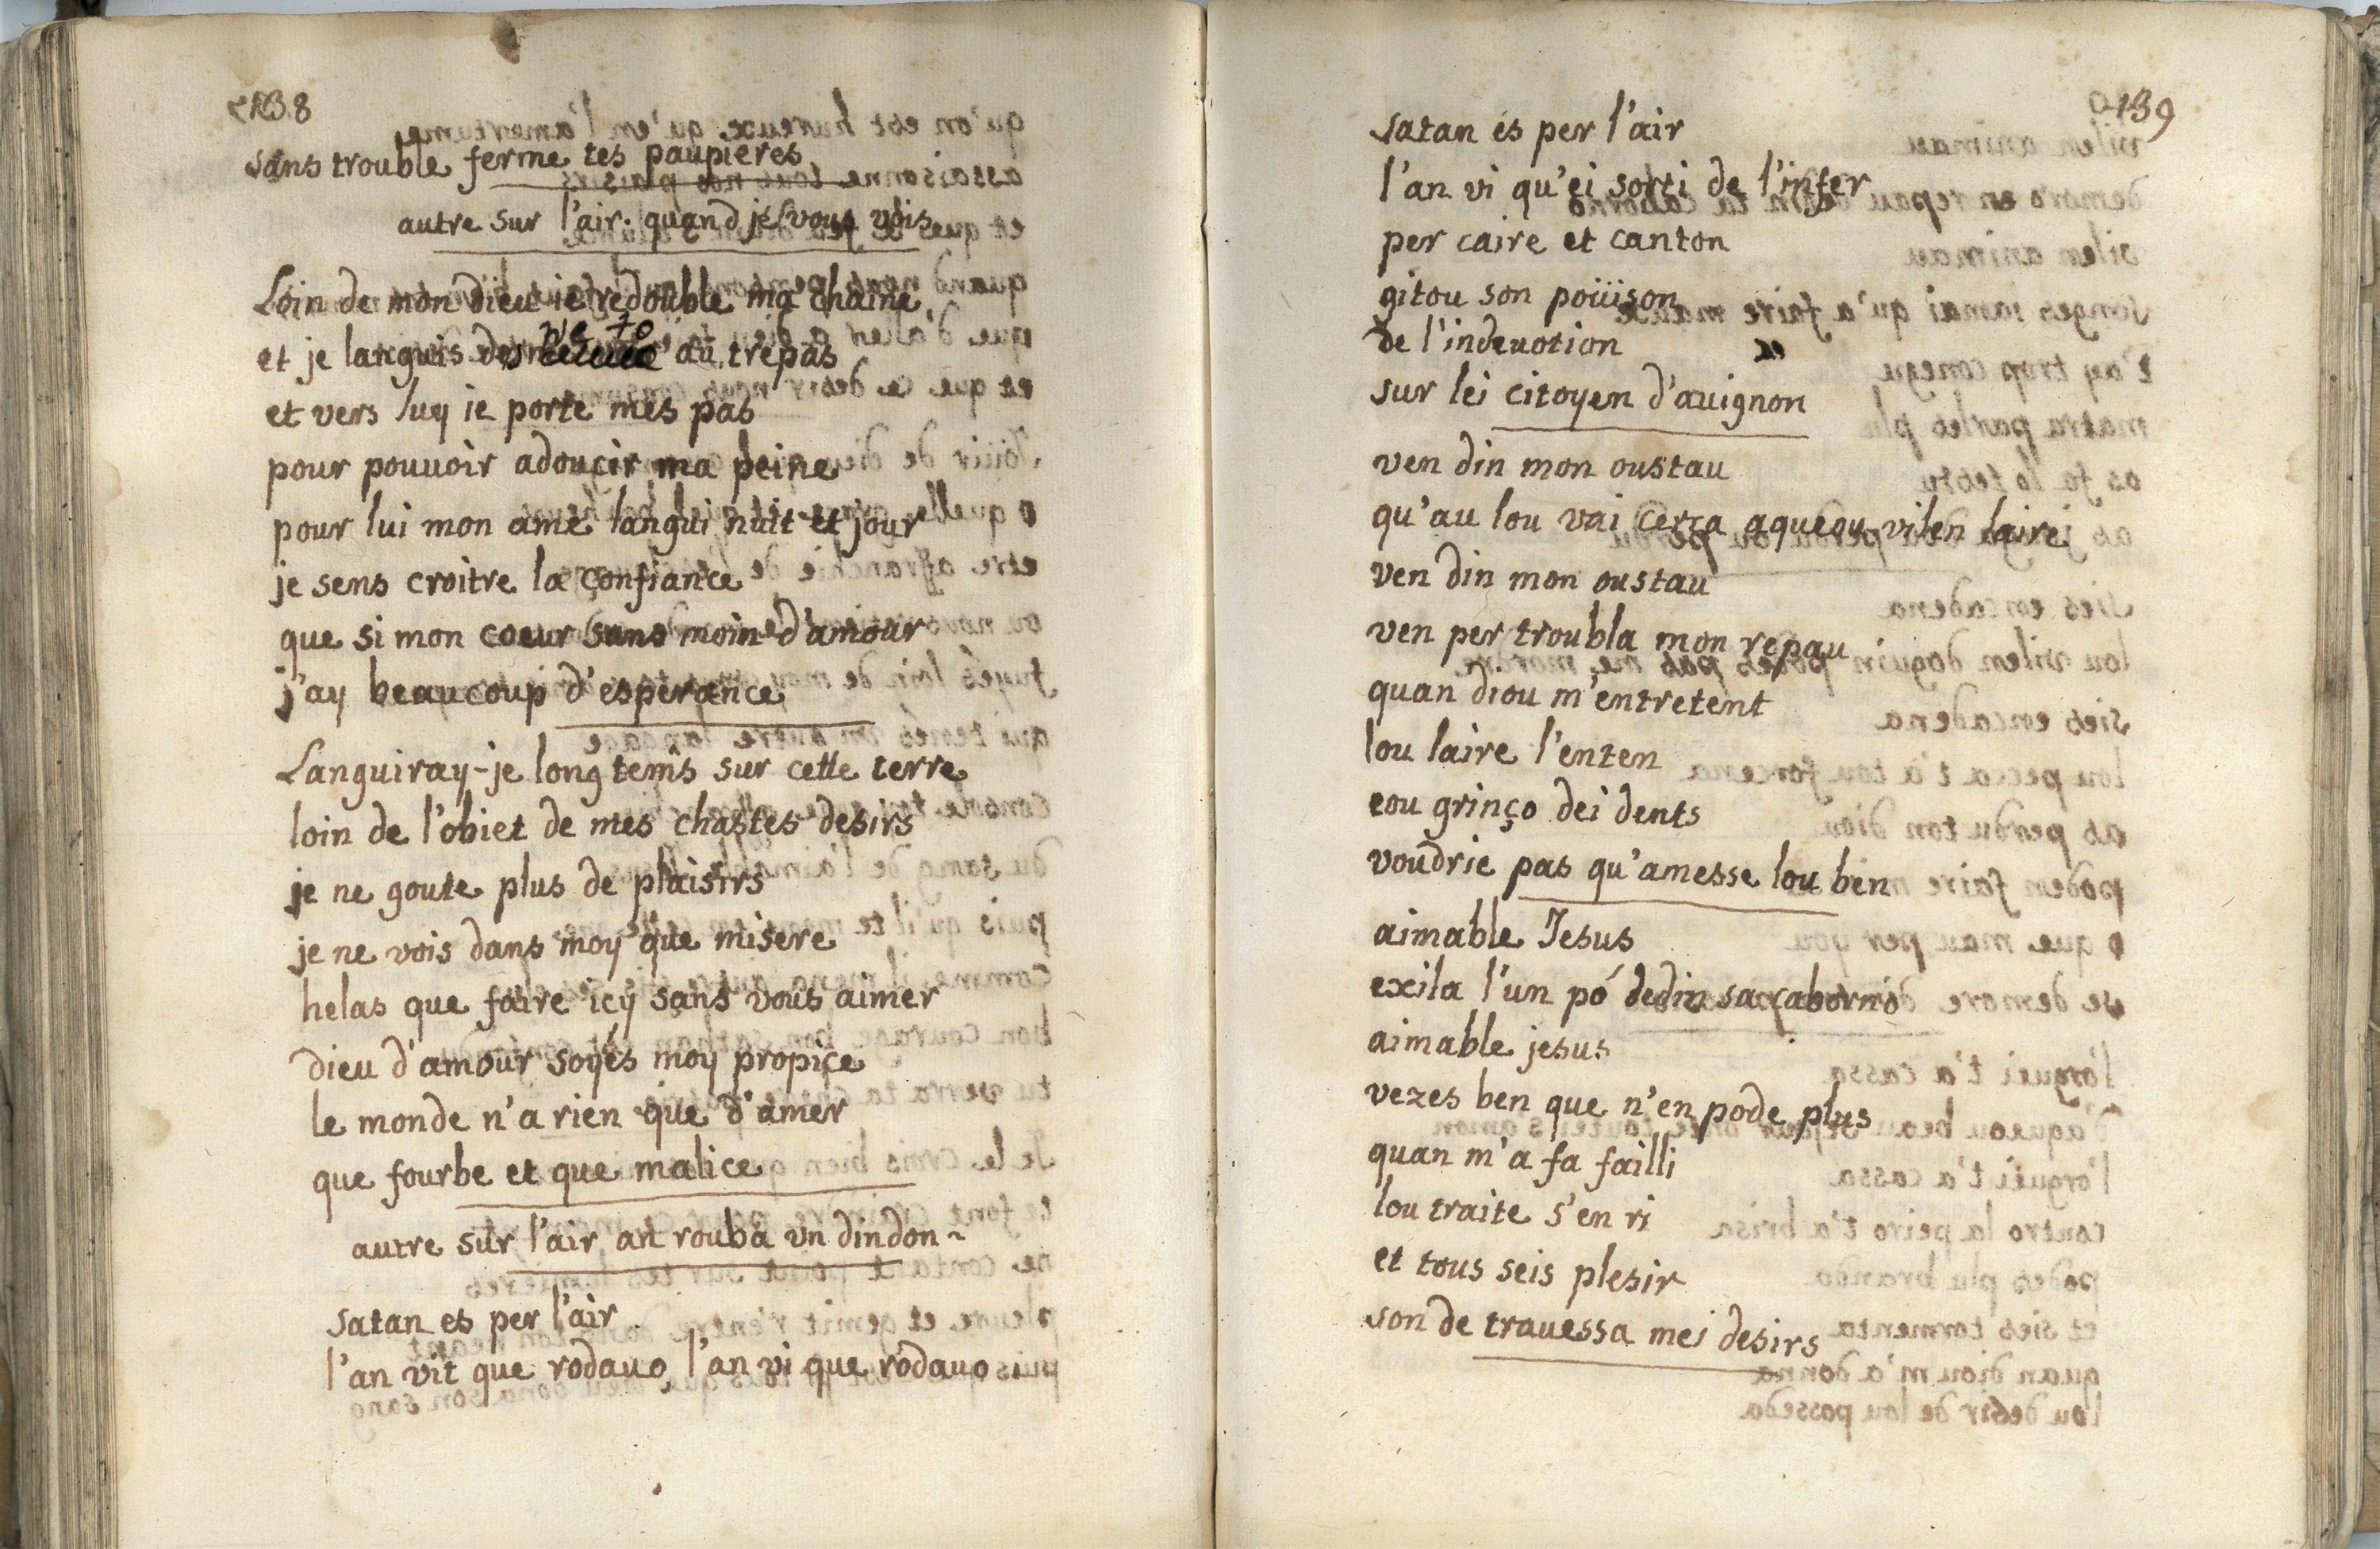 138
sans trouble ferme tes paupieres
autre sur l'air. quand je vous vois
Loin de mon dieu ie redouble ma chaine
et je languis au trepas
et vers luy ie porte mes pas
pour pouuoir adoucir ma peine
pour lui mon ame langui nuit et jour
je sens croitre la confiance
que si mon coeur sans moin d'amour
j'ay beaucoup d'esperance
Languiray-je long tems sur cette terre
loin de l'obiet de mes chastes desirs
je ne goute plus de plaisirs
je ne vois dans moy que misere
helas que faire icy sans vous aimer
dieu d'amour soyés moy propice
le monde n'a rien que d'amer
que fourbe et que malice
autre sur l'air an rouba vn dindon~
satan es per l'air
l'an vit que rodauo, l'an vi que rodauo
139
satan és per l'air
l'an vi qu'ei sorti de l'infer
per caire et canton
gitou son poüison
de l'indeuotion
sur lei citoyen d'auignon
ven din mon oustau
qu'au lou vai cerca aqueou vilen laire
ven din mon oustau
ven per troubla mon repau
quan diou m'entretent
lou laire l'enten
eou grinço dei dents
voudrie pas qu'amesse lou ben
aimable Jesus
exila l'un pó dedin sa caborno
aimable jesus
vezes ben que n'en pode plus
quan m'a fa failli
lou traite s'en ri
et tous seis plesir
son de trauessa mei desirs